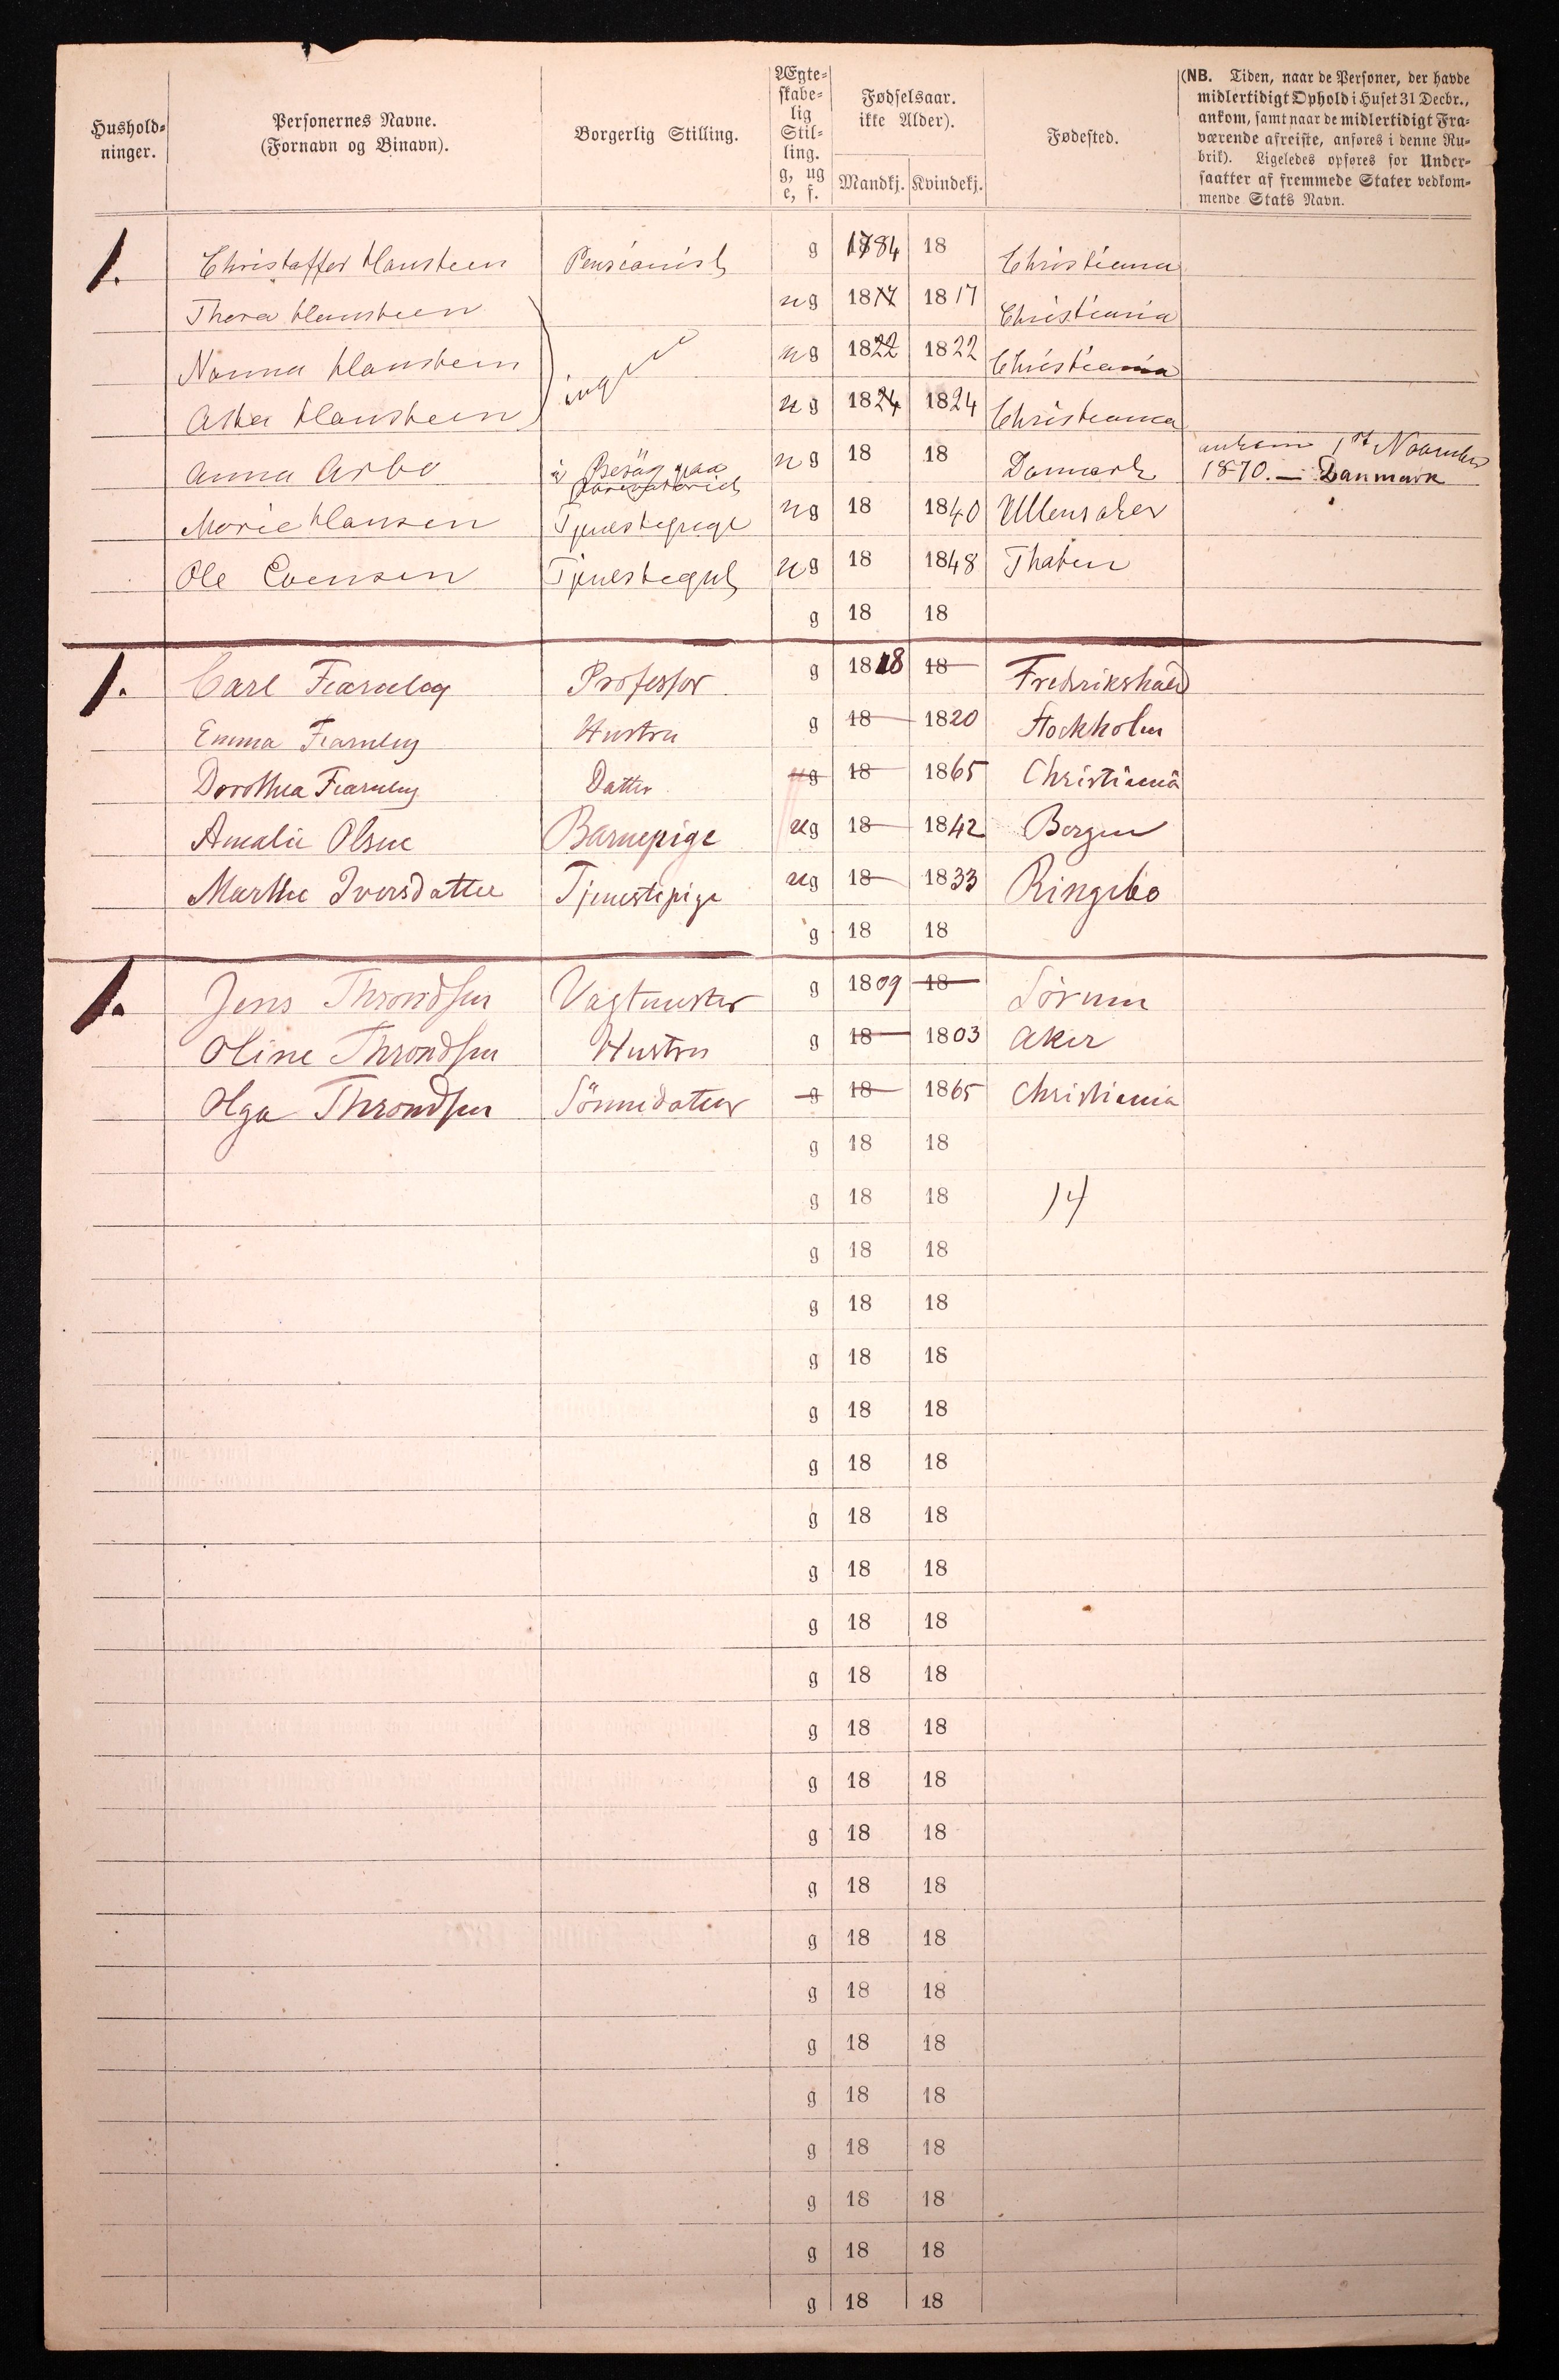 Hushold-
ninger.
Personernes Navne.
(Fornavn og Binavn).
Borgerlig Stilling.
Ægte-
skabe-
lig
Stil-
ling.
g, ug
e, f.
Fødselsaar.
ikke Alder).
Mandkj. Kvindekj.
Fødested.
(NB. Tiden, naar de Personer, der havde
midlertidigt Ophold i Huset 31 Decbr.,
ankom, samt naar de midlertidigt Fra-
værende afreiste, anføres i denne Ru-
brik). Ligeledes opføres for Under-
saatter af fremmede Stater vedkom-
mende Stats Navn.
1. Christoffer Hansteen Pensionist g 1784 18 Christiania
Thora Hansteen ug 1817 1817 Christiania
Nanna Hansteen ingen ug 1822 1822 Christiania
Asta Hansteen ug 1824 1824 Christiania
Anna Arbo i Besög paa ug 18 18 Danmark ankom 1st November
1870. — Danmark
Marie Hansen Tjenestepige ug 18 1840 Ullensaker
Ole Evensen Tjenestegut ug 18 1848 Thoten
g 18 18
1. Carl Fearnley Professor g 1818 18 Fredrikshald
Emma Fearnley Hustru g 18 1820 Stockholm
Dorothea Fearnley Datter ug 18 1865 Christiania
Amalie Olsen Barnepige ug 18 1842 Bergen
Marthe Iversdatter Tjenestepige ug 18 1833 Ringebo
g 18 18
1. Jens Throndsen Vagtmester g 1809 18 Sörum
Oline Throndsen Hustru g 18 1803 Aker
Olga Throndsen Sönnedatter g 18 1865 Christiania
g 18 18
g 18 18 14
g 18 18
g 18 18
g 18 18
g 18 18
g 18 18
g 18 18
g 18 18
g 18 18
g 18 18
g 18 18
g 18 18
g 18 18
g 18 18
g 18 18
g 18 18
g 18 18
g 18 18
g 18 18
g 18 18
g 18 18
g 18 18